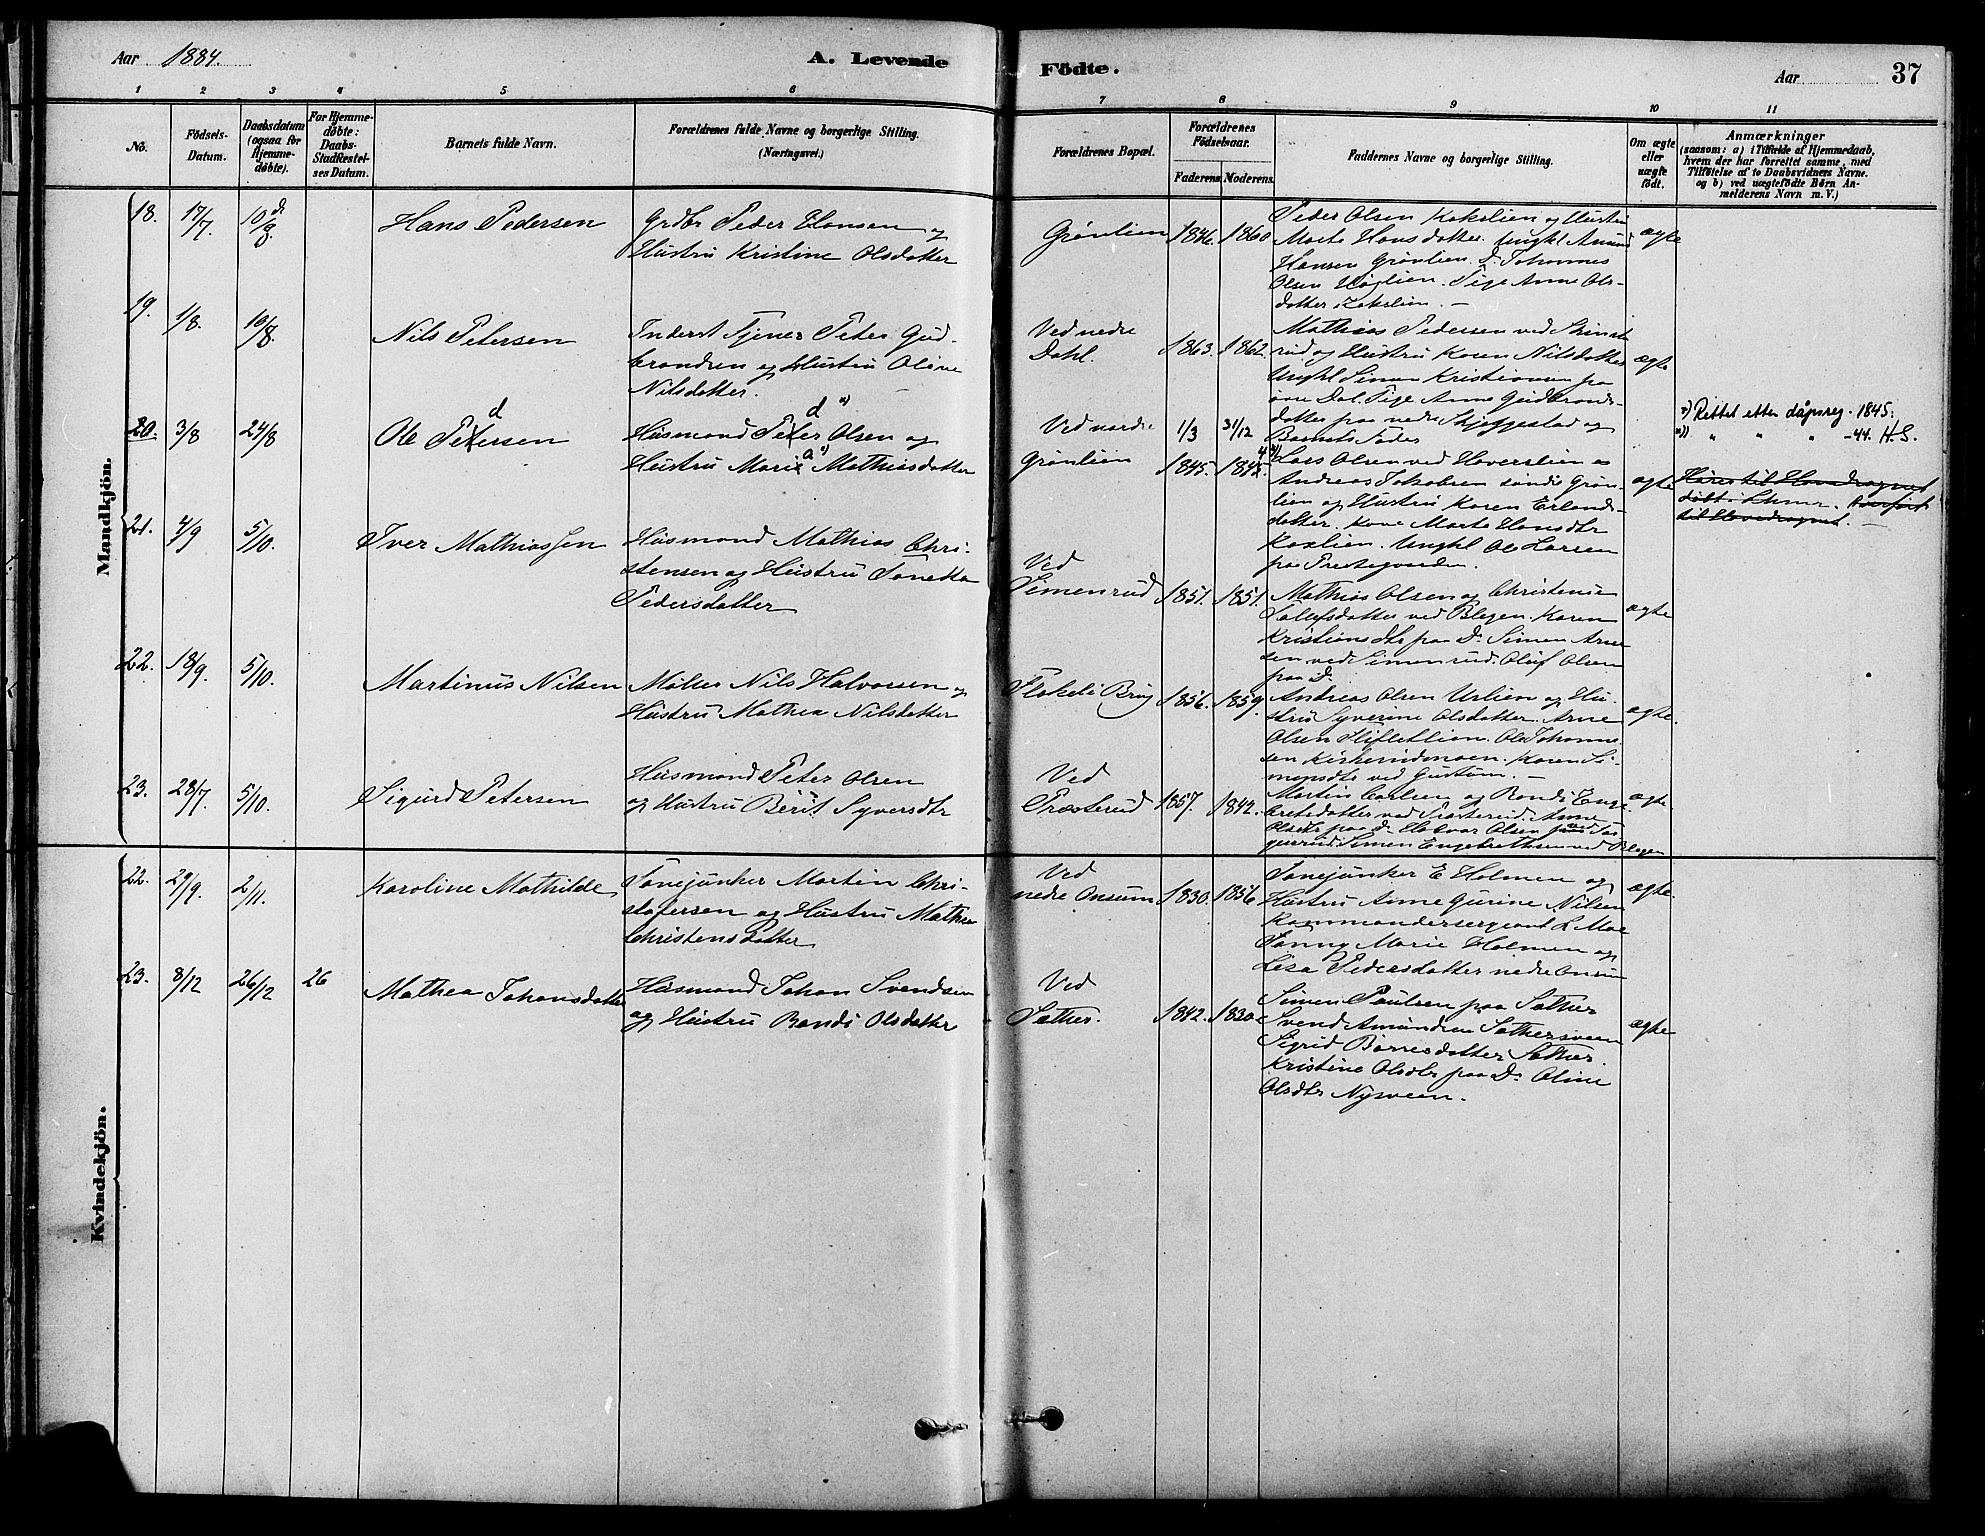 Aar 1884.
A. Levende
Födte.
Aar
37
1
2
3
4
5
6
7
8
9
10
11
No.
Födsels-
Datum.
Daabsdatum
(ogsaa for
Hjemme-
døbte).
For Hjemme-
døbte:
Daabs-
Stadfæstel-
ses Datum.
Barnets fulde Navn.
Forældrenes fulde Navne og borgerlige Stilling.
(Næringsvei.)
Forældrenes Bopæl.
Forældrenes
Födselsaar.
Faderens.
Moderens.
Faddernes Navne og borgerlige Stilling.
Om ægte
eller
uægte
født.
Anmærkninger
(saasom: a) i Tilfælde af Hjemmedaab,
hvem der har forrettet samme, med
Tilføielse af to Daabsvidners Navne.
og b) ved uægtefödte Börn An-
melderens Navn m. V.)
Mandkjön.
18.
17/7.
10/8
Hans Pedersen
Grdbr Peder Hansen og
Hustru Kristine Olsdatter
Grønlien
1846.
1860
Peder Olsen Kokslien og Hustru
Marte Hansdatter. Ungkl Amund
Hansen Grønlien. D. Johannes
Olsen Høglien. Pige Anne Ols-
datter Kokslien. —
ægte
19.
1/8.
10/8.
Nils Petersen
Inderst Tjener Peter Gud-
brandsen og Hustru Oline
Nilsdatter.
Ved nedre
Dahl.
1863.
1862.
Mathias Pedersen ved Skinst
rud og Hustru Karen Nilsdatter
Ungkl Simen Kristiansen paa
øvre Dal. Pige Anne Gudbrands-
datter paa nedre Skjeggestad og
Barnets Fader
ægte
20.
3/8
24/8
Ole Petersen
d
Husmand Peter Olsen og
d *)
Hustru Marie Mathiasdatter
a *)
Ved nordre
Grønlien
1/3
1845.
31/12
1845
4 *)
Lars Olsen ved Haverslien og
Andreas Jakobsen søndre Grøn-
lien og Hustru Karen Erlands-
datter. Kone Marte Hansdtr
Koxlien. Ungkl Ole Larsen
paa Prestegaarden.
ægte
*) Rettet etter dåpsreg. 1845.
*)) " " " -44. H.S.
døbt i
til Hovedsognet. —
21.
4/9
5/10.
Iver Mathiassen
Husmand Mathias Chri-
stensen og Hustru Tonetta
Pedersdatter
Ved
Simenrud
1851.
1851.
Mathias Olsen og Christense
datter ved Blegen. Karen
Kristiansdtr paa D. Simen Arne
sen ved Simenrud. Oluf Olsen
paa D.
ægte
22.
18/9.
5/10.
Martinus Nilsen
Møller Nils Halvorsen og
Hustru Mathea Nilsdatter
Flokeli Brug
1856.
1859.
Andreas Olsen Urlien og Hu-
stru Syverine Olsdatter. Arne
Olsen Slifletlien. Ole Johanne
sen Kirkerudmoen. Karen Si-
mensdtr ved Gustum. —
ægte.
23.
28/7.
5/10.
Sigurd Petersen
Husmand Peter Olsen
og Hustru Berit Syversdtr
Ved
Præsterud
1857.
1842.
Martin Carlsen og Randi Enge
bretsdatter ved Præsterud. Anne
Olsdtr paa D. Halvor Olsen ved
Simen Engebrethsen ved Blegen
ægte.
Kvindekjön.
22.
29/9.
2/11.
Karoline Mathilde
Fanejunker Martin Chri-
stofersen og Hustru Mathea
Christensdatter
Ved
nedre Onsum
1830.
1856
Fanejunker E Holmen og
Hustru Anne Gurine Nilsen
Kommandersergeant L Moe
Fanny Marie Holmen og
Lisa Pedersdatter nedre Onsum
ægte.
23.
8/12
26/12
26
Mathea Johansdatter
Husmand Johan Svendsen
og Hustru Randi Olsdatter
Ved
Sæther.
1842.
1830
Simen Paulsen paa Sæther
Svend Amundsen Sæthersveen
Sigrid Børresdatter Sæther.
Kristine Olsdtr paa D. Oline
Olsdtr Nysveen.
ægte